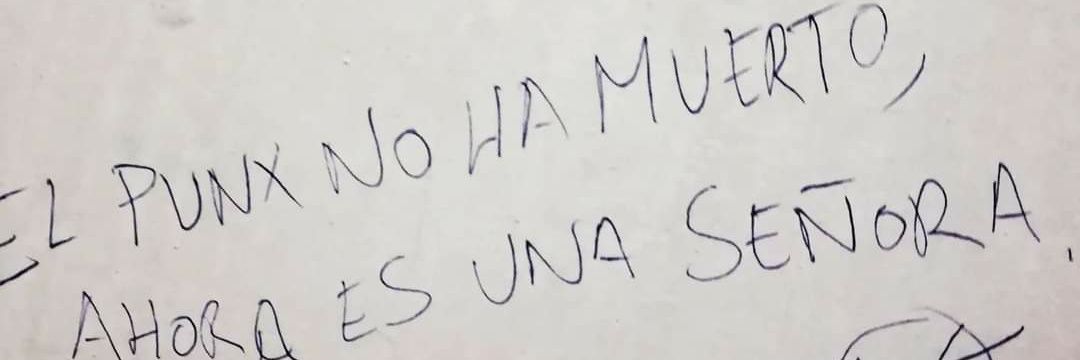 EL PUNX NO HA MUERTO,
AHORA ES UNA SEÑORA.